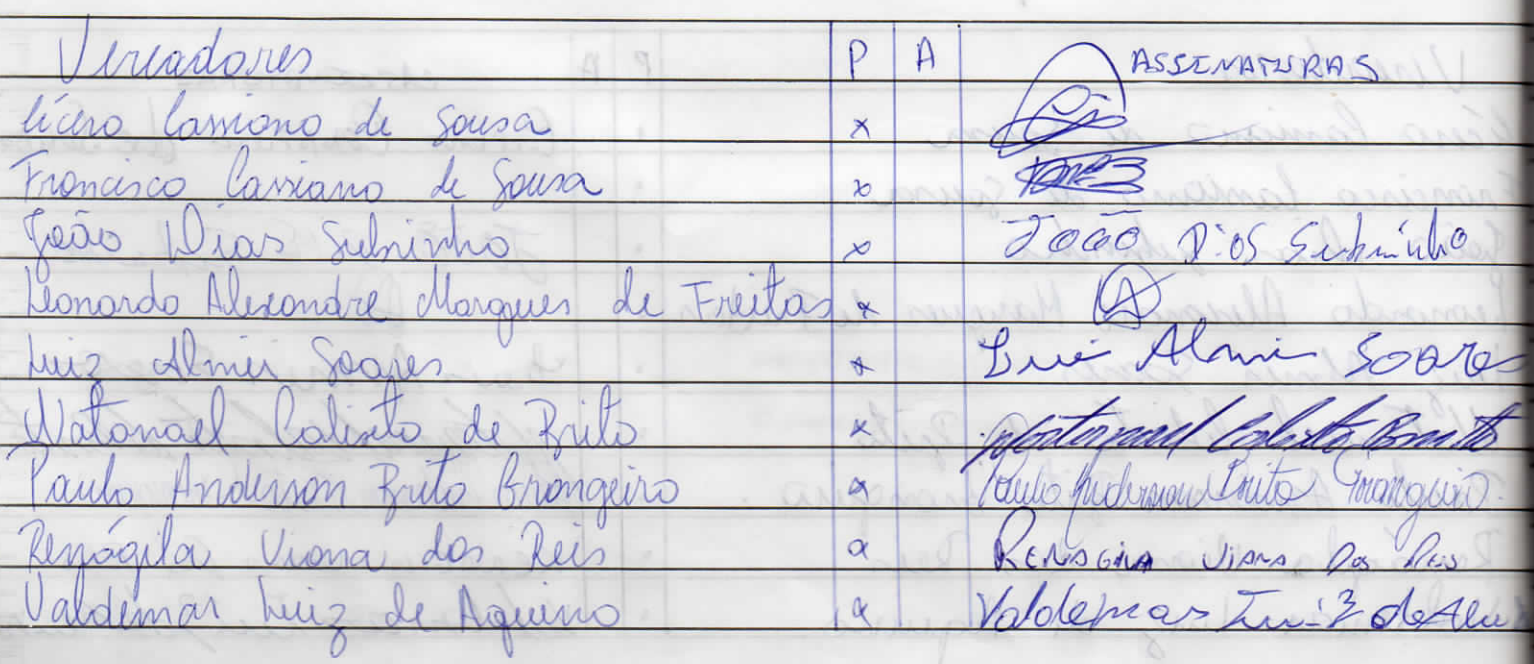 Vereadores P A ASSINATURAS
Cícero Cassiano de Sousa x
Francisco Cassiano de Sousa x
João Dias Sobrinho x João Dias Sobrinho
Leonardo Alexandre Marques de Freitas x
Luiz Almir Soares x Luiz Almir Soares
Natanael Calixto de Brito x Natanael Calixto Brito
Paulo Anderson Brito Grangeiro x Paulo Anderson Brito Grangeiro
Viana dos Reis x Viana Dos Reis
Valdemar Luiz de Aquino x Valdemar Luiz de